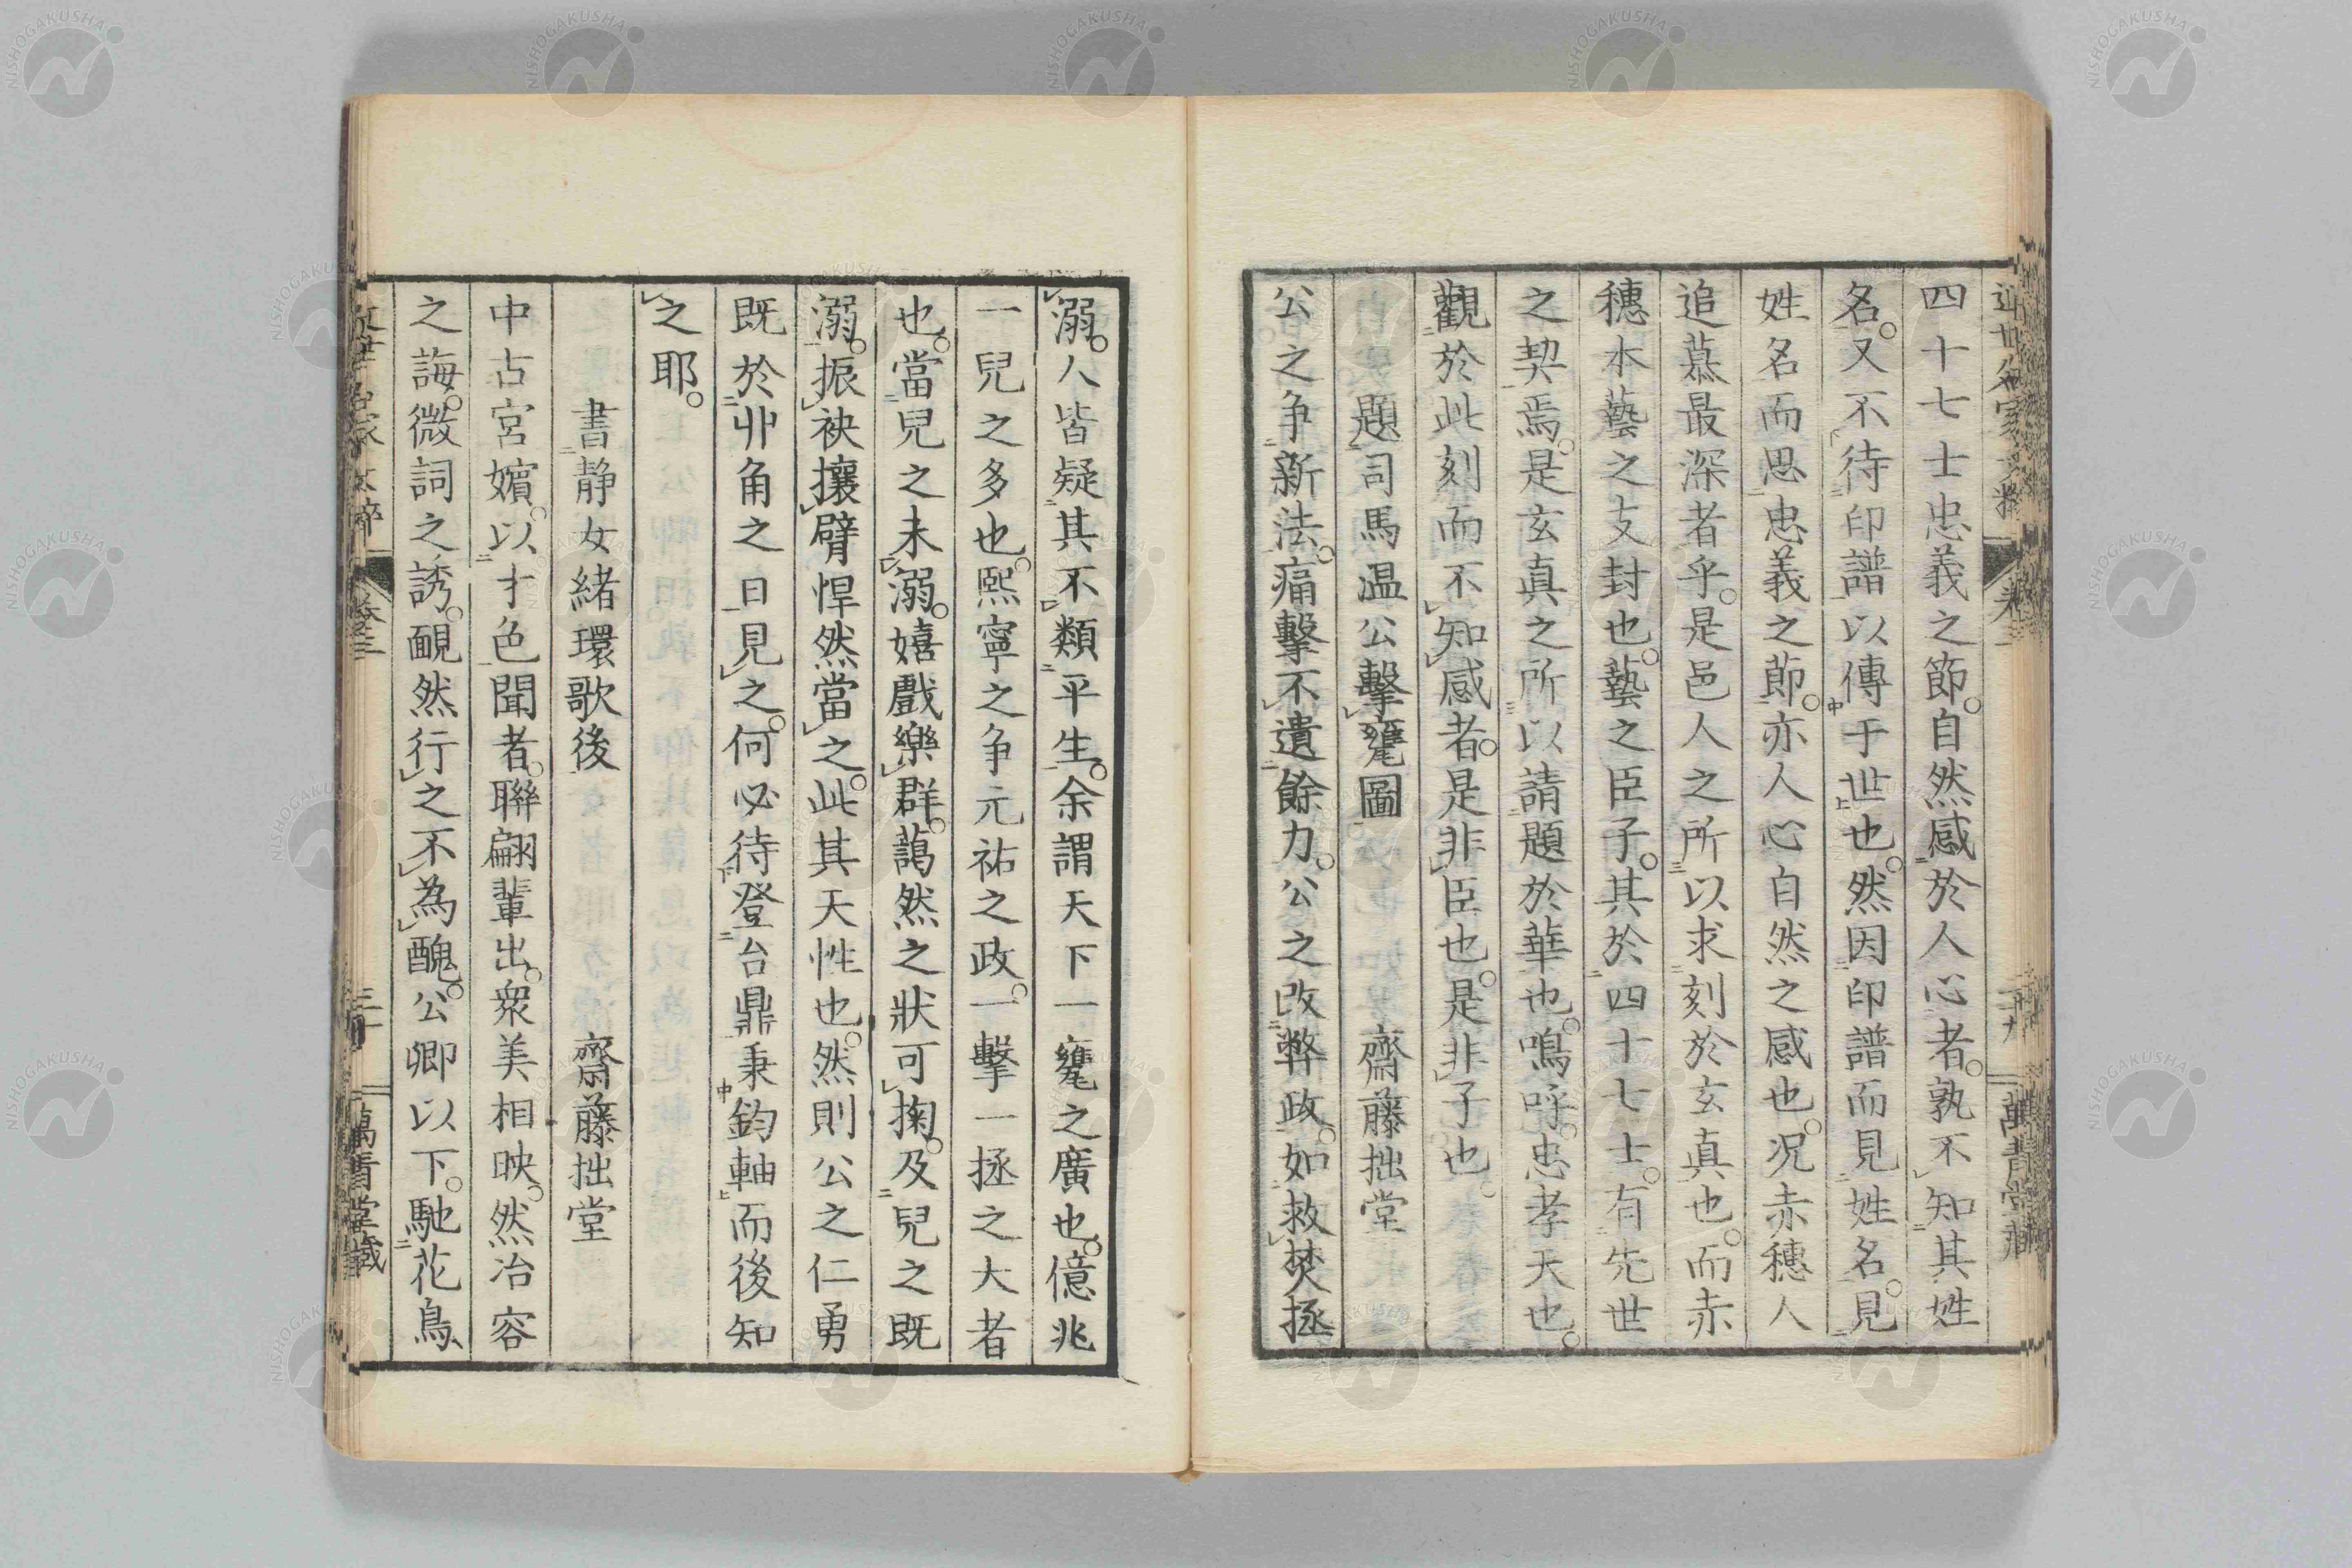 四十七士忠義之節。自然感於人心者。孰不知其姓
名。又不待印譜以傳于世也。然因印譜而見姓名。見
姓名而思忠義之節。亦人心自然之感也。况赤穗人
追慕最深者乎。是邑人之所以求刻於玄真也。而赤
穗本藝之支封也。藝之臣子。其於四十七士。有先世
之契焉。是玄真之所以請題於華也。鳴呼。忠孝天也。
觀於此刻而不知感者。是非臣也。是非子也。
題司馬温公擊甕圖 齋藤拙堂
公之争新法。痛擊不遺餘力。公之改弊政。如救焚拯
溺。人皆疑其不類平生。余謂天下一甕之廣也。億兆
一兒之多也。熙寧之争元祐之政。一擊一拯之大者
也。當兒之未溺。嬉戲樂群。藹然之狀可掬。及兒之既
溺。振袂攘臂悍然當之。此其天性也。然則公之仁勇
既於丱角之日見之。何必待登台鼎秉鈞軸而後知
之耶。
書静女緒環歌後 齋藤拙堂
中古宮嬪。以才色聞者。聯翩輩出。衆美相映。然冶容
之誨。微詞之誘。靦然行之不為醜。公卿以下。馳花鳥
萬青堂藏